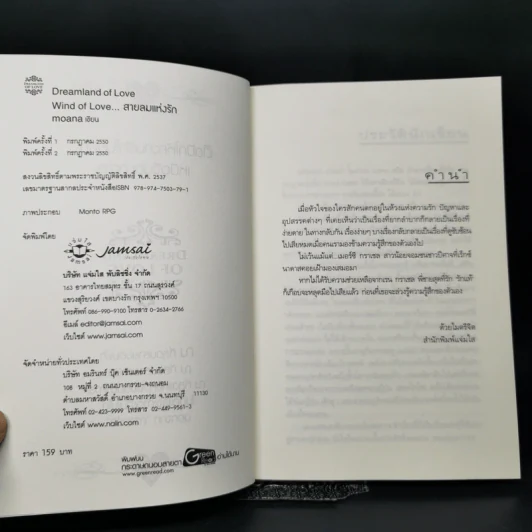 Dreamland of Love
Wind of Love... สายลมแห่งรัก
moana เขียน
พิมพ์ครั้งที่ 1 กรกฎาคม 2550
พิมพ์ครั้งที่ 2 กรกฎาคม 2550
สงวนลิขสิทธิ์ตามพระราชบัญญัติลิขสิทธิ์ พ.ศ. 2537
เลขมาตรฐานสากลประจำหนังสือISBN 978-974-7503-79-1
ภาพประกอบ Manta RPG
จัดพิมพ์โดย
jamsai
บริษัท แจ่มใส พับลิชชิ่ง จำกัด
163 อาคารไทยสมุทร ชั้น 17 ถนนสุรวงศ์
แขวงสุริยวงศ์ เขตบางรัก กรุงเทพฯ 10500
โทรศัพท์ 086-990-9100 โทรสาร 0-2634-2766
อีเมล์ editor@jamsai.com
เว็บไซต์ www.jamsai.com
จัดจำหน่ายทั่วประเทศโดย
บริษัท อมรินทร์ บุ๊ค เซ็นเตอร์ จำกัด
108 หมู่ที่ 2 ถนนบางกรวย-จงถนอม
ตำบลมหาสวัสดิ์ อำเภอบางกรวย จ.นนทบุรี 11130
โทรศัพท์ 02-423-9999 โทรสาร 02-449-9561-3
เว็บไซต์ www.naiin.com
ราคา 159 บาท
พิมพ์บน
กระดาษถนอมสายตา
Green
อ่านได้นาน
www.greenread.com
คำนำ
เมื่อหัวใจของใครสักคนตกอยู่ในห้วงแห่งความรัก ปัญหาและ
อุปสรรคต่างๆ ที่เคยเห็นว่าเป็นเรื่องที่ยากลำบากก็กลายเป็นเรื่องที่
ง่ายดาย ในทางกลับกัน เรื่องง่ายๆ บางเรื่องก็กลายเป็นเรื่องที่ดูซับซ้อน
ไปเสียหมดเมื่อคนเรามองข้ามความรู้สึกของตัวเองไป
ไม่เว้นแม้แต่...เมอร์ซี กราเซล สาวน้อยจอมซนชาวปีศาจที่เริงร่า
หากไม่ได้รับความช่วยเหลือจากเซน กราเซล พี่ชายสุดที่รัก รักแท้
ก็เกือบจะหลุดมือไปเสียแล้ว ก่อนที่เธอจะล่วงรู้ความรู้สึกของตัวเอง
ด้วยไมตรีจิต
สำนักพิมพ์แจ่มใส